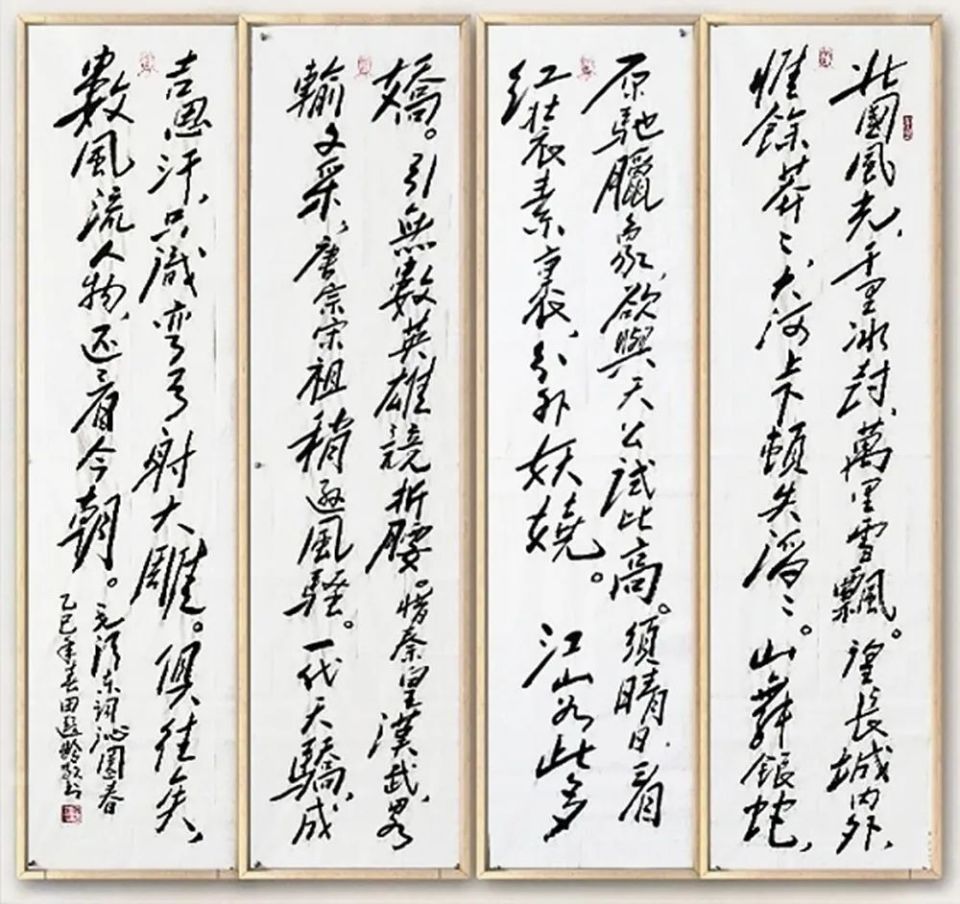 北國風光，千里冰封，萬里雪飄。望長城内外，
惟餘莽〻，大河上下頓失滔〻。山舞銀蛇，
原馳臘象，欲與天公試比高。須晴日，看
红裝素裹，分外妖嬈。江山如此多
嬌。引無數英雄競折腰。惜秦皇漢武，畧
輸文采，唐宗宋祖稍遜風騷。一代天驕，成
吉思汗，只識弯弓射大雕。俱往矣，
數風流人物，还看今朝。
毛泽东词沁園春
乙巳年春田